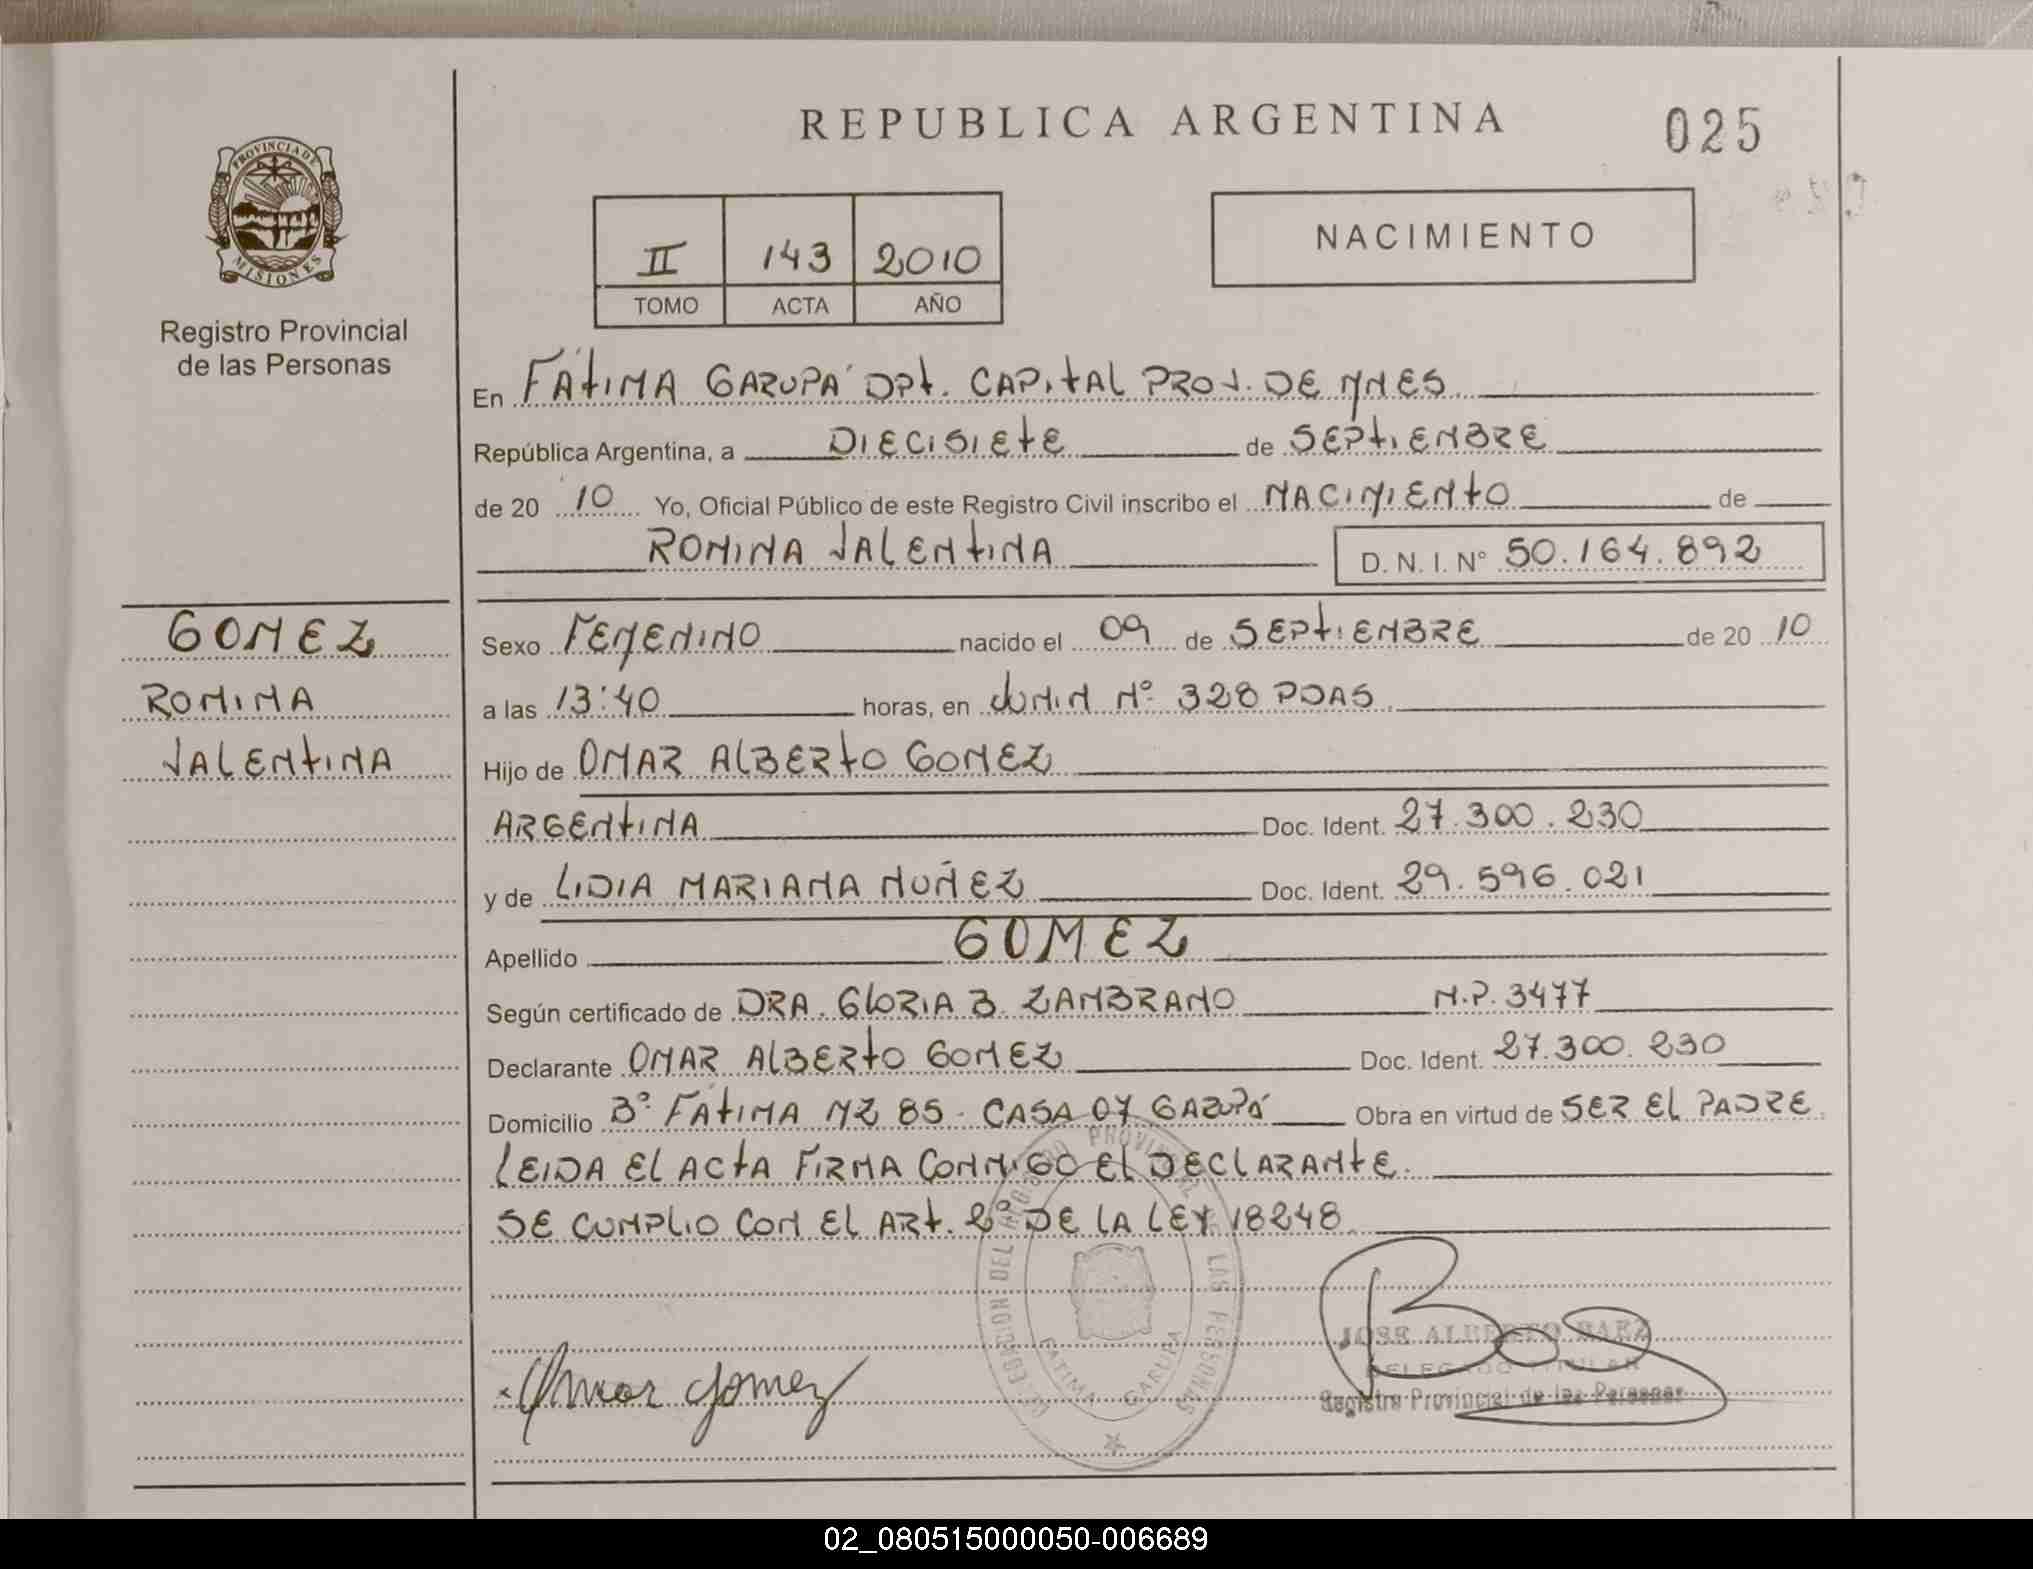 REPUBLICA ARGENTINA
025
PROVINCIA DE
MISIONES
Registro Provincial
de las Personas
II 143 2010
TOMO ACTA AÑO
NACIMIENTO
En FÁTIMA GARUPÁ DPT. CAPITAL PROV. DE MNES
República Argentina, a DIECISIETE de SEPTIEMBRE
de 20 10 Yo, Oficial Público de este Registro Civil inscribo el NACIMIENTO de
ROMINA VALENTINA D. N. I. N° 50.164.892
GOMEZ
ROMINA
VALENTINA
Sexo FEMENINO nacido el 09 de SEPTIEMBRE de 20 10
a las 13:40 horas, en JUNIN Nº 328 PDAS
Hijo de OMAR ALBERTO GOMEZ
ARGENTINA Doc. Ident. 27.300.230
y de LIDIA MARIANA NUÑEZ Doc. Ident. 29.596.021
Apellido GOMEZ
Según certificado de DRA. GLORIA B. ZAMBRANO M.P. 3477
Declarante OMAR ALBERTO GOMEZ Doc. Ident. 27.300.230
Domicilio Bº FÁTIMA MZ 85 - CASA 07 GARUPÁ Obra en virtud de SER EL PADRE
LEIDA EL ACTA FIRMA CONMIGO EL DECLARANTE.
SE CUMPLIO CON EL ART. 2º DE LA LEY 18248
PROVINCIAL DE LAS PERSONAS
FATIMA GARUPA
Omar Gomez
JOSE ALBERTO BAEZ
DELEGADO TITULAR
Registro Provincial de las Personas
02_080515000050-006689